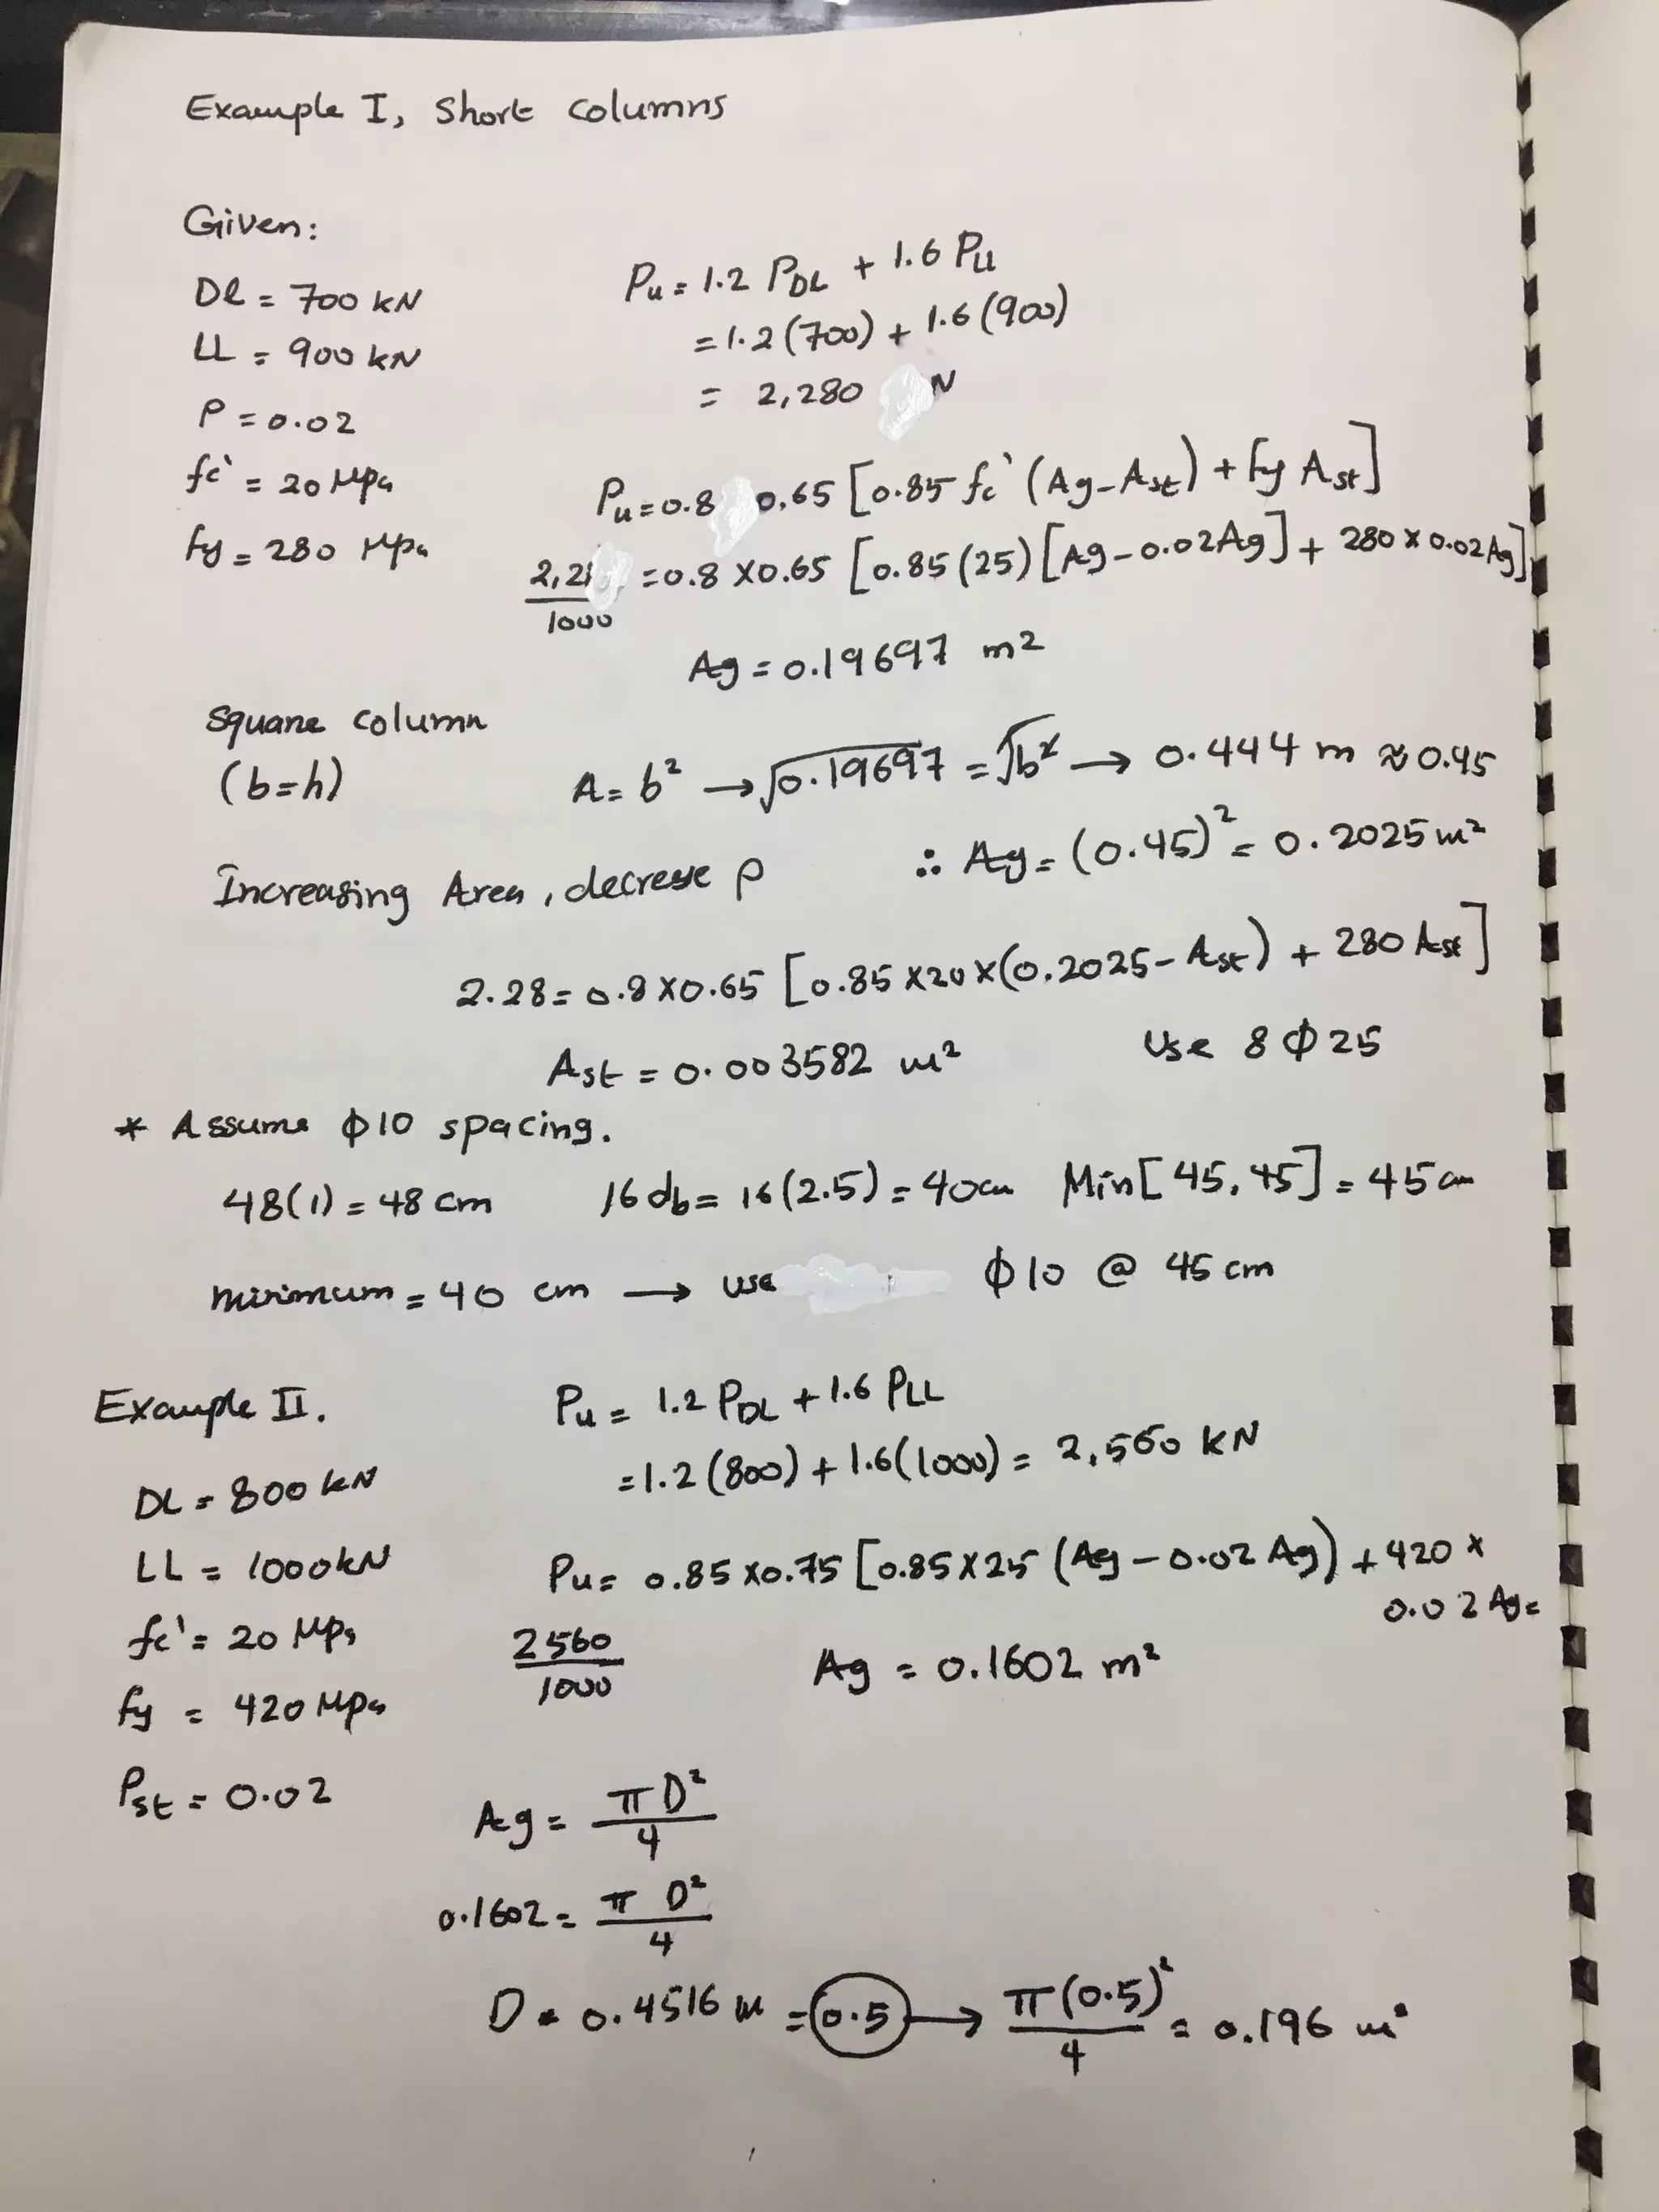 Example I, Short columns
Given:
Dl = 700 kN
LL = 900 kN
ρ = 0.02
fc' = 20 Mpa
fy = 280 Mpa
Pu = 1.2 PDL + 1.6 PLL
= 1.2 (700) + 1.6 (900)
= 2,280 N
Pu = 0.8 0.65 [0.85 fc' (Ag - Ast) + fy Ast]
2,2 / 1000 = 0.8 x 0.65 [0.85 (25) [Ag - 0.02 Ag] + 280 x 0.02 Ag]
Ag = 0.19697 m²
square column
(b=h)
A = b² → √0.19697 = √b² → 0.444 m ≈ 0.45
∴ Ag = (0.45)² = 0.2025 m²
Increasing Area, decrese ρ
2.28 = 0.8 x 0.65 [0.85 x 20 x (0.2025 - Ast) + 280 Ast]
Ast = 0.003582 m²
Use 8 φ 25
* Assume φ10 spacing.
48(1) = 48 cm 16 db = 16 (2.5) = 40cm Min [45, 45] = 45 cm
minimum = 40 cm → use φ10 @ 45 cm
Example II.
DL = 800 kN
LL = 1000 kN
fc' = 20 Mpa
fy = 420 Mpa
Pst = 0.02
Pu = 1.2 PDL + 1.6 PLL
= 1.2 (800) + 1.6 (1000) = 2,560 kN
Pu = 0.85 x 0.75 [0.85 x 25 (Ag - 0.02 Ag) + 420 x
0.02 Ag =
2560 / 1000
Ag = 0.1602 m²
Ag = πD² / 4
0.1602 = π D² / 4
D = 0.4516 m = 0.5 → π(0.5)² / 4 = 0.196 m²